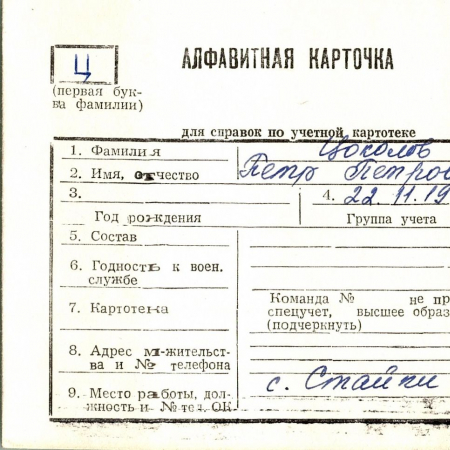 Ц
АЛФАВИТНАЯ КАРТОЧКА
(первая бук-
ва фамилии)
для справок по учетной картотеке
1. Фамилия Цоколов
2. Имя, отчество Петр Петров
3.
4. 22.11.19
Год рождения
Группа учета
5. Состав
6. Годность к воен.
службе
7. Картотека
Команда № не пр
спецучет, высшее образ
(подчеркнуть)
8. Адрес м-жительст-
ва и № телефона
9. Место работы, дол-
жность и № тел. ОК
с. Стайки